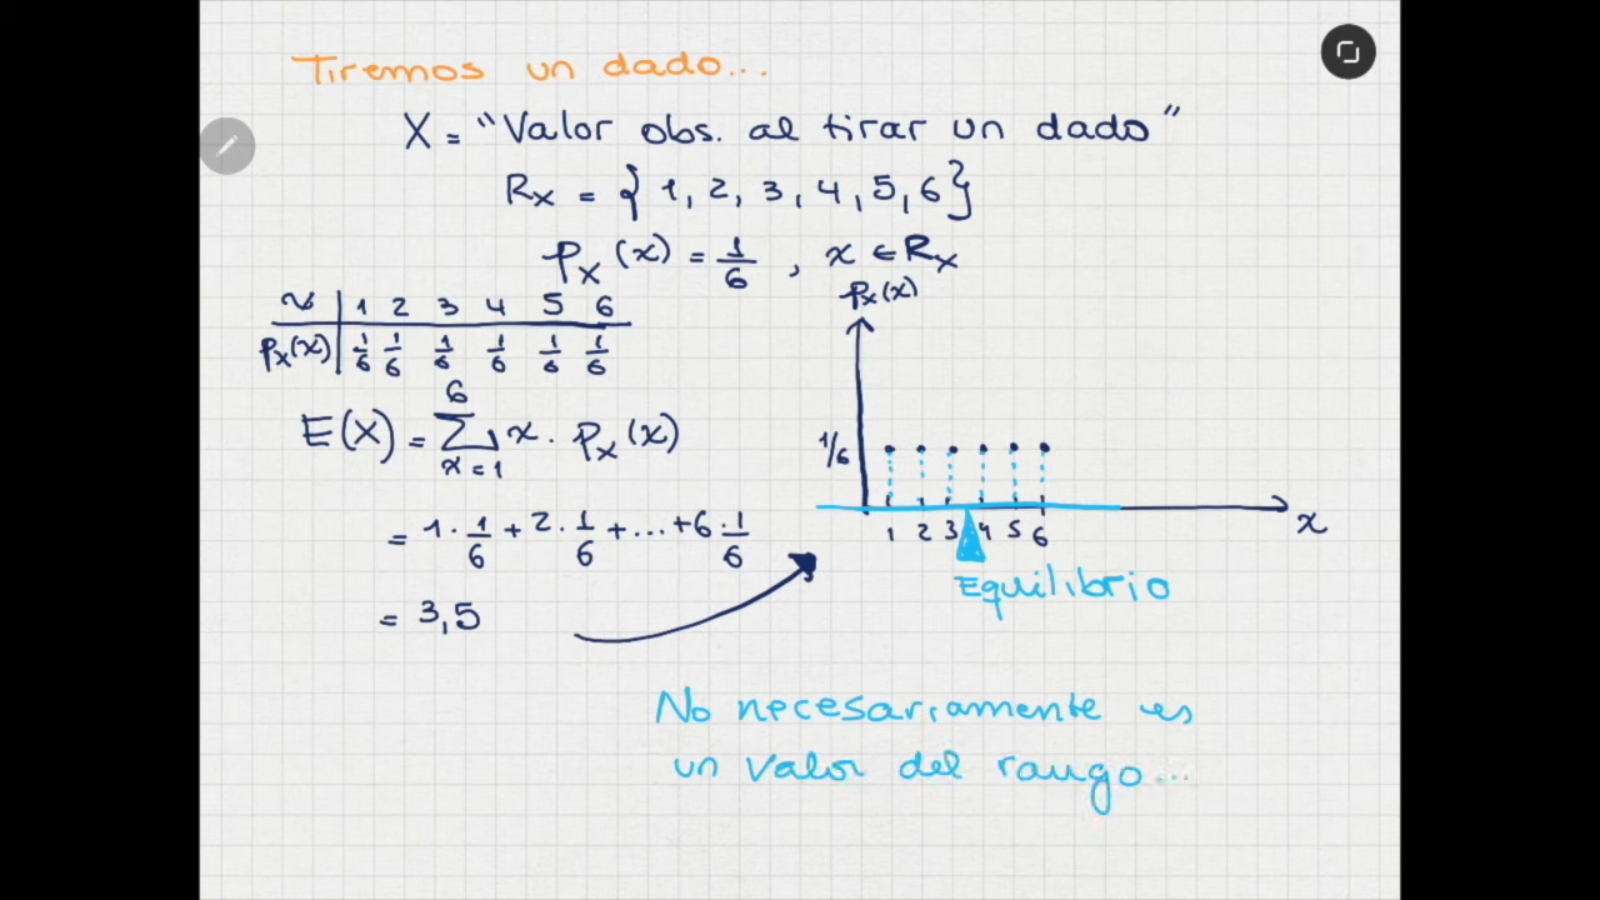 Tiremos un dado...
X = "Valor obs. al tirar un dado"
Rx = { 1, 2, 3, 4, 5, 6 }
px(x) = 1/6 , x ∈ Rx
x | 1 2 3 4 5 6
px(x) | 1/6 1/6 1/6 1/6 1/6 1/6
E(X) = ∑ x=1 6 x · px(x)
= 1 · 1/6 + 2 · 1/6 + ... + 6 · 1/6
= 3,5
px(x)
1/6
1 2 3 4 5 6
x
Equilibrio
No necesariamente es
un valor del rango...